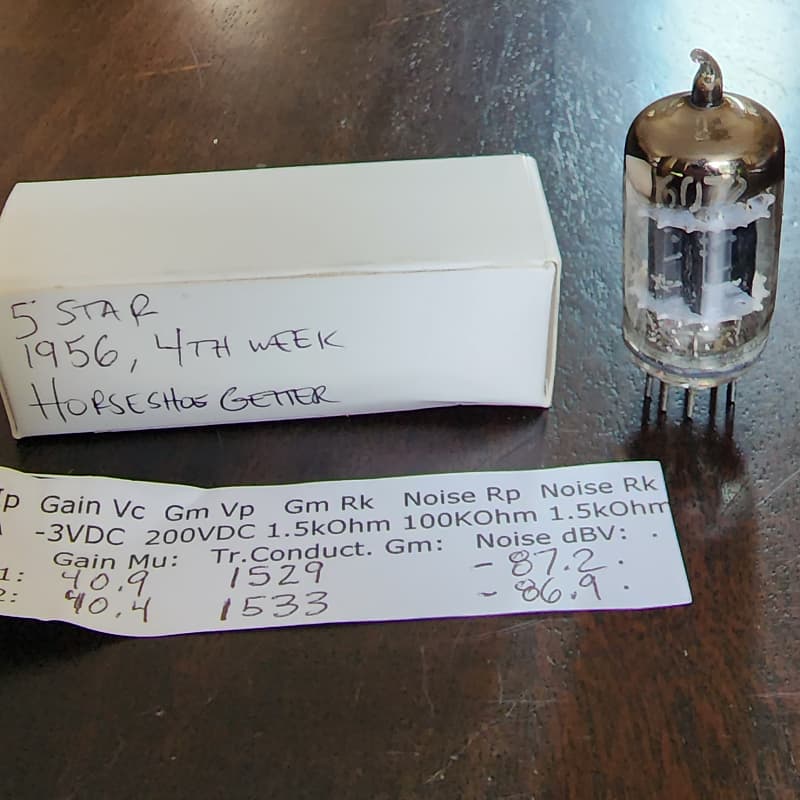 6072
5 STAR
1956, 4TH WEEK
HORSESHOE GETTER
Gain Vc Gm Vp Gm Rk Noise Rp Noise Rk
-3VDC 200VDC 1.5kOhm 100KOhm 1.5kOhm
Gain Mu: Tr.Conduct. Gm: Noise dBV: .
1: 40.9 1529 -87.2 .
2: 40.4 1533 -86.9 .